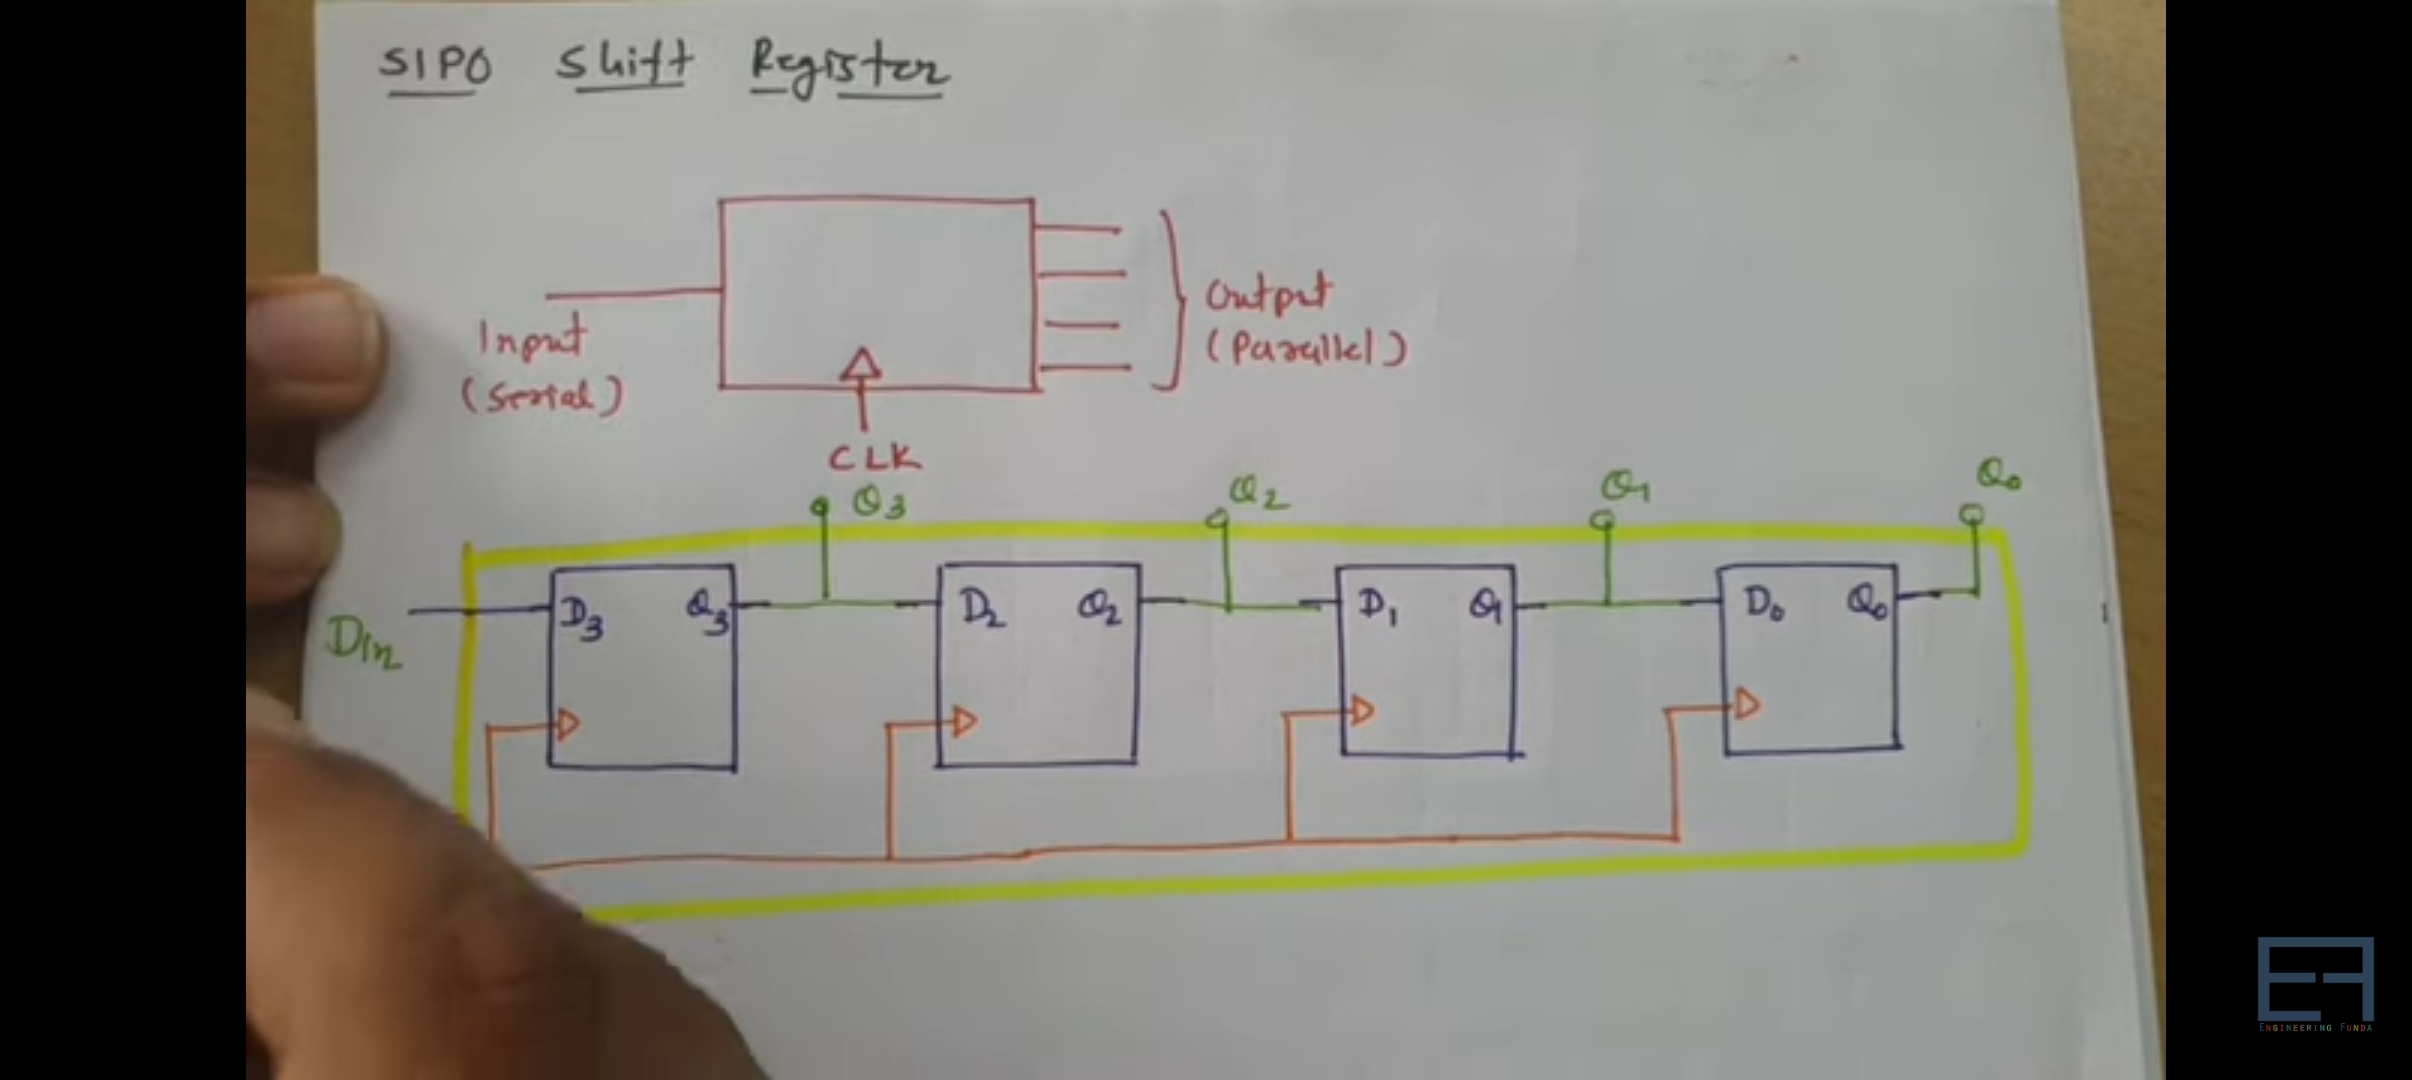 SIPO Shift Register
Input
(Serial)
Output
(Parallel)
CLK
Q3
Q2
Q1
Q0
Din
D3 Q3
D2 Q2
D1 Q1
D0 Q0
EF
ENGINEERING FUNDA